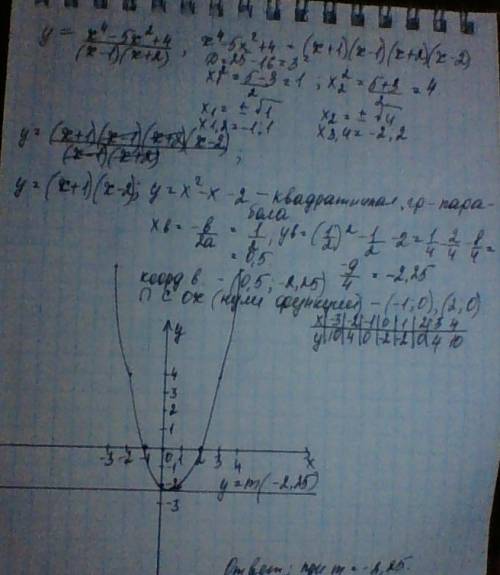 y = (x⁴ - 5x² + 4) / ((x-1)(x+2)), x⁴-5x²+4 = (x+1)(x-1)(x+2)(x-2)
D = 25-16 = 3²
x₁² = (5-3)/2 = 1; x₂² = (5+3)/2 = 4
x₁ = ±√1 x₂ = ±√4
x1,2 = -1,1 x3,4 = -2,2
y = (x+1)(x-1)(x+2)(x-2) / ((x-1)(x+2));
y = (x+1)(x-2); y = x²-x-2 - квадратичная, гр-пара-
бола
xв = -в/2a = 1/2 = 0,5, yв = (1/2)² - 1/2 - 2 = 1/4 - 2/4 - 8/4 =
-9/4 = -2,25
коорд в. - (0,5; -2,25)
∩ С OX (нули функции) - (-1,0), (2,0)
x -3 -2 -1 0 1 2 3 4
y 10 4 0 -2 -2 0 4 10
y
4
3
2
1
-3 -2 -1 0 1 2 3 4 x
-1
-2
y = m (-2,25)
-3
Ответ: при m = -2,25.